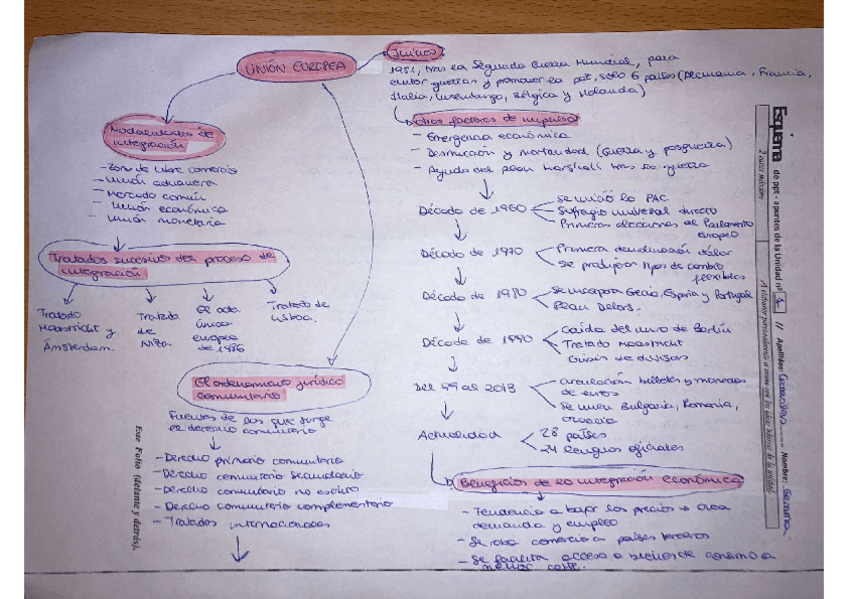 UNIÓN EUROPEA
Inicios
1951, tras la Segunda Guerra Mundial, para
evitar guerras y promover la paz, solo 6 países (Alemania, Francia,
Italia, Luxemburgo, Bélgica y Holanda)
Otros factores de impulso
- Emergencia económica
- Destrucción y mortalidad (Guerra y posguerra)
- Ayuda del plan Marshall tras la guerra
Década de 1960
Se inició la PAC
Sufragio universal directo
Primeras elecciones al Parlamento
europeo
Década de 1970
Primera devaluación dólar
Se producen tipos de cambio
flexibles
Década de 1980
Se incorpora Grecia, España y Portugal
Plan Delors.
Década de 1990
Caída del muro de Berlín
Tratado Maastricht
Crisis de divisas
Del 99 al 2013
Circulación billetes y monedas
de euros
Se unen Bulgaria, Romania,
Croacia
Actualidad
28 países
24 lenguas oficiales
Beneficios de la integración económica
- Tendencia a bajar los precios → crea
demanda y empleo
- Se roba comercio a países terceros
- Se facilita acceso a bienes de consumo a
menor coste.
Modalidades de
integración
- Zona de libre comercio
- Unión aduanera
- Mercado común
- Unión económica
- Unión monetaria
Tratados sucesivos del proceso de
integración
Tratado
Maastricht y
Ámsterdam.
Tratado
de
Niza
El acta
única
europea
de 1986
Tratado de
Lisboa.
El ordenamiento jurídico
comunitario
Fuentes de las que surge
el derecho comunitario
- Derecho primario comunitario
- Derecho comunitario secundario
- Derecho comunitario no escrito
- Derecho comunitario complementario
- Tratados internacionales
Este Folio (delante y detrás).
Esquema de ppt - apuntes de la Unidad nº 1 // Apellidos: Nombre: Gemma
2 caras máximo